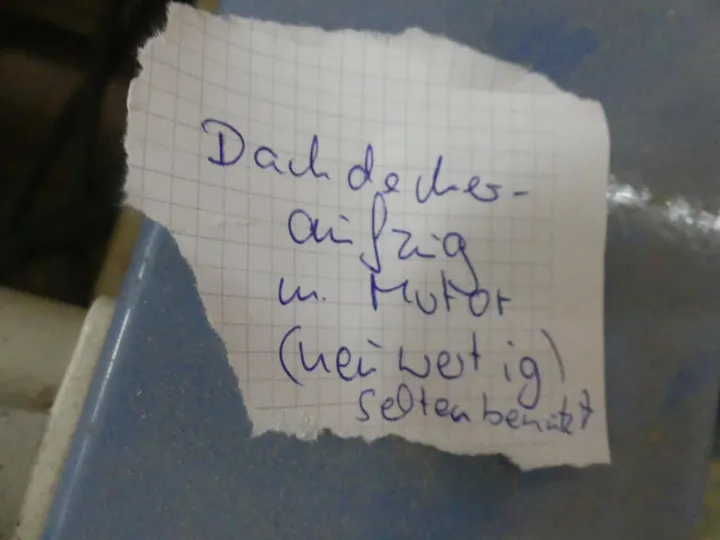 Dachdecker-
aufzug
m. Motor
(neuwertig)
selten benutzt